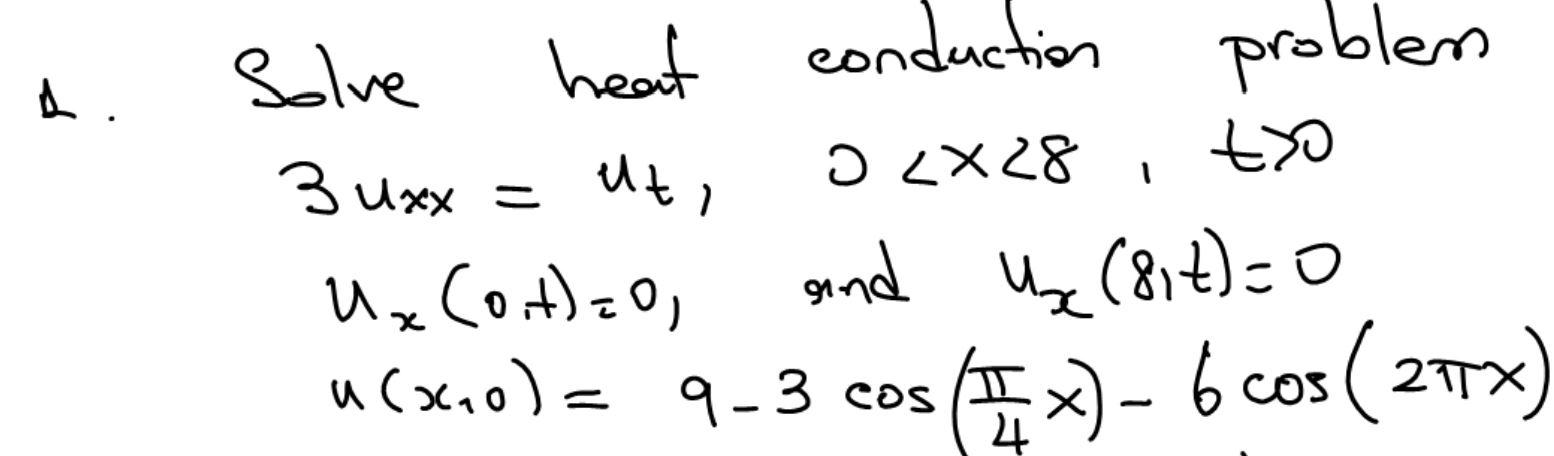 1. Solve heat conduction problem
3 uxx = ut, 0 < x < 8, t>0
ux (0,t)=0, and ux (8,t)=0
u(x,0) = 9 - 3 cos(π/4 x) - 6 cos(2πx)